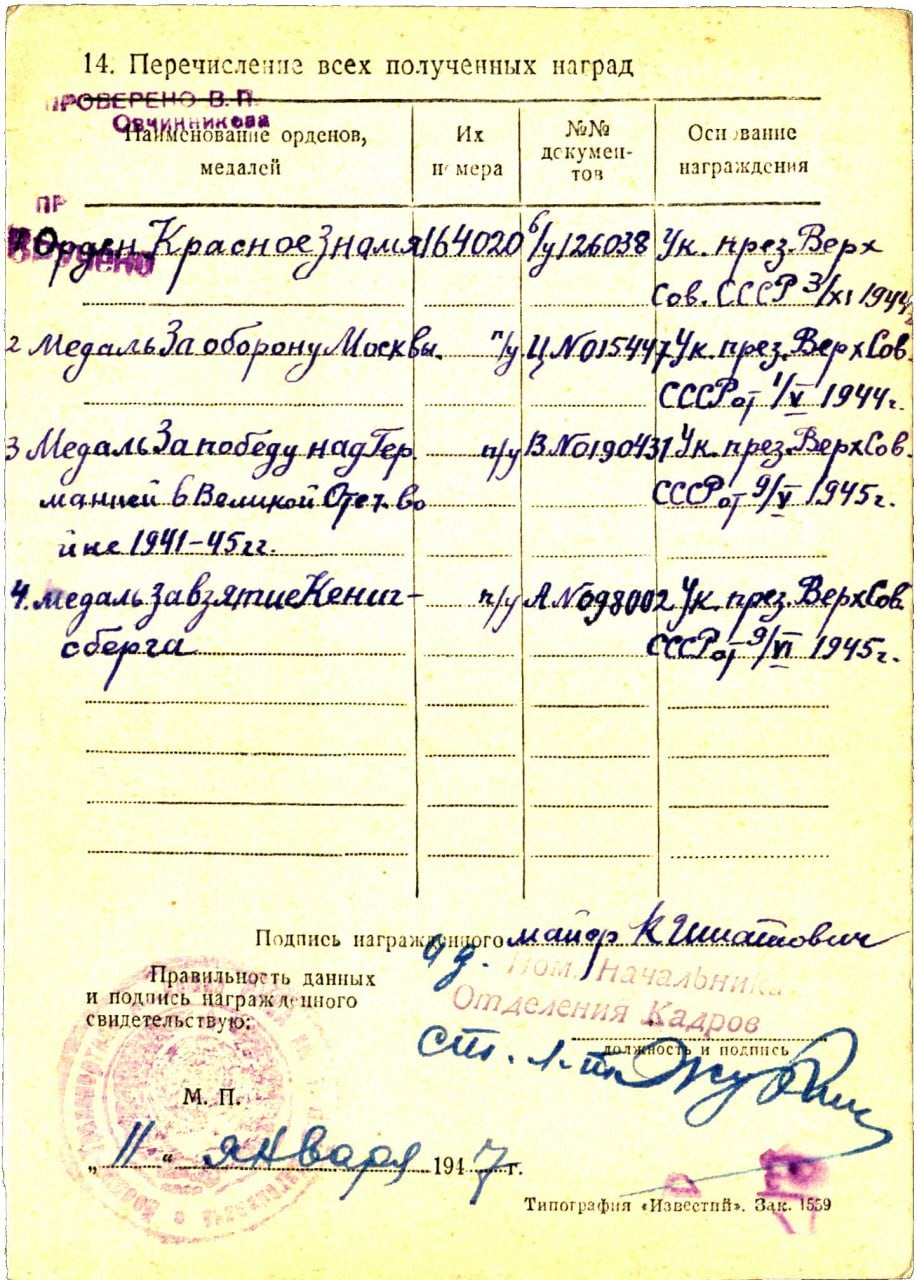 14. Перечисление всех полученных наград
ПРОВЕРЕНО В. П.
Овчинникова
Наименование орденов, медалей
Их номера
№№ документов
Основание награждения
ПР
1 Орден Красное Знамя 164020 б/у 126038 Ук. през. Верх
Сов. СССР 3/XI 1944
2 Медаль За оборону Москвы. п/у Ц №015447 Ук. през. Верх Сов.
СССР от 1/V 1944г.
3 Медаль За победу над Гер п/у В №0190431 Ук. през. Верх Сов.
манией в Великой Отеч. во СССР от 9/V 1945г.
йне 1941-45гг.
4. медаль За взятие Кениг- п/у А №098002 Ук. през. Верх Сов.
сберга СССР от 9/VI 1945г.
Подпись награжденного майор
Правильность данных
и подпись награжденного
свидетельствую:
Пом. Начальника
Отделения Кадров
должность и подпись
ст. л-т
М. П.
„11“ января 1947 г.
Типография «Известий». Зак. 1559